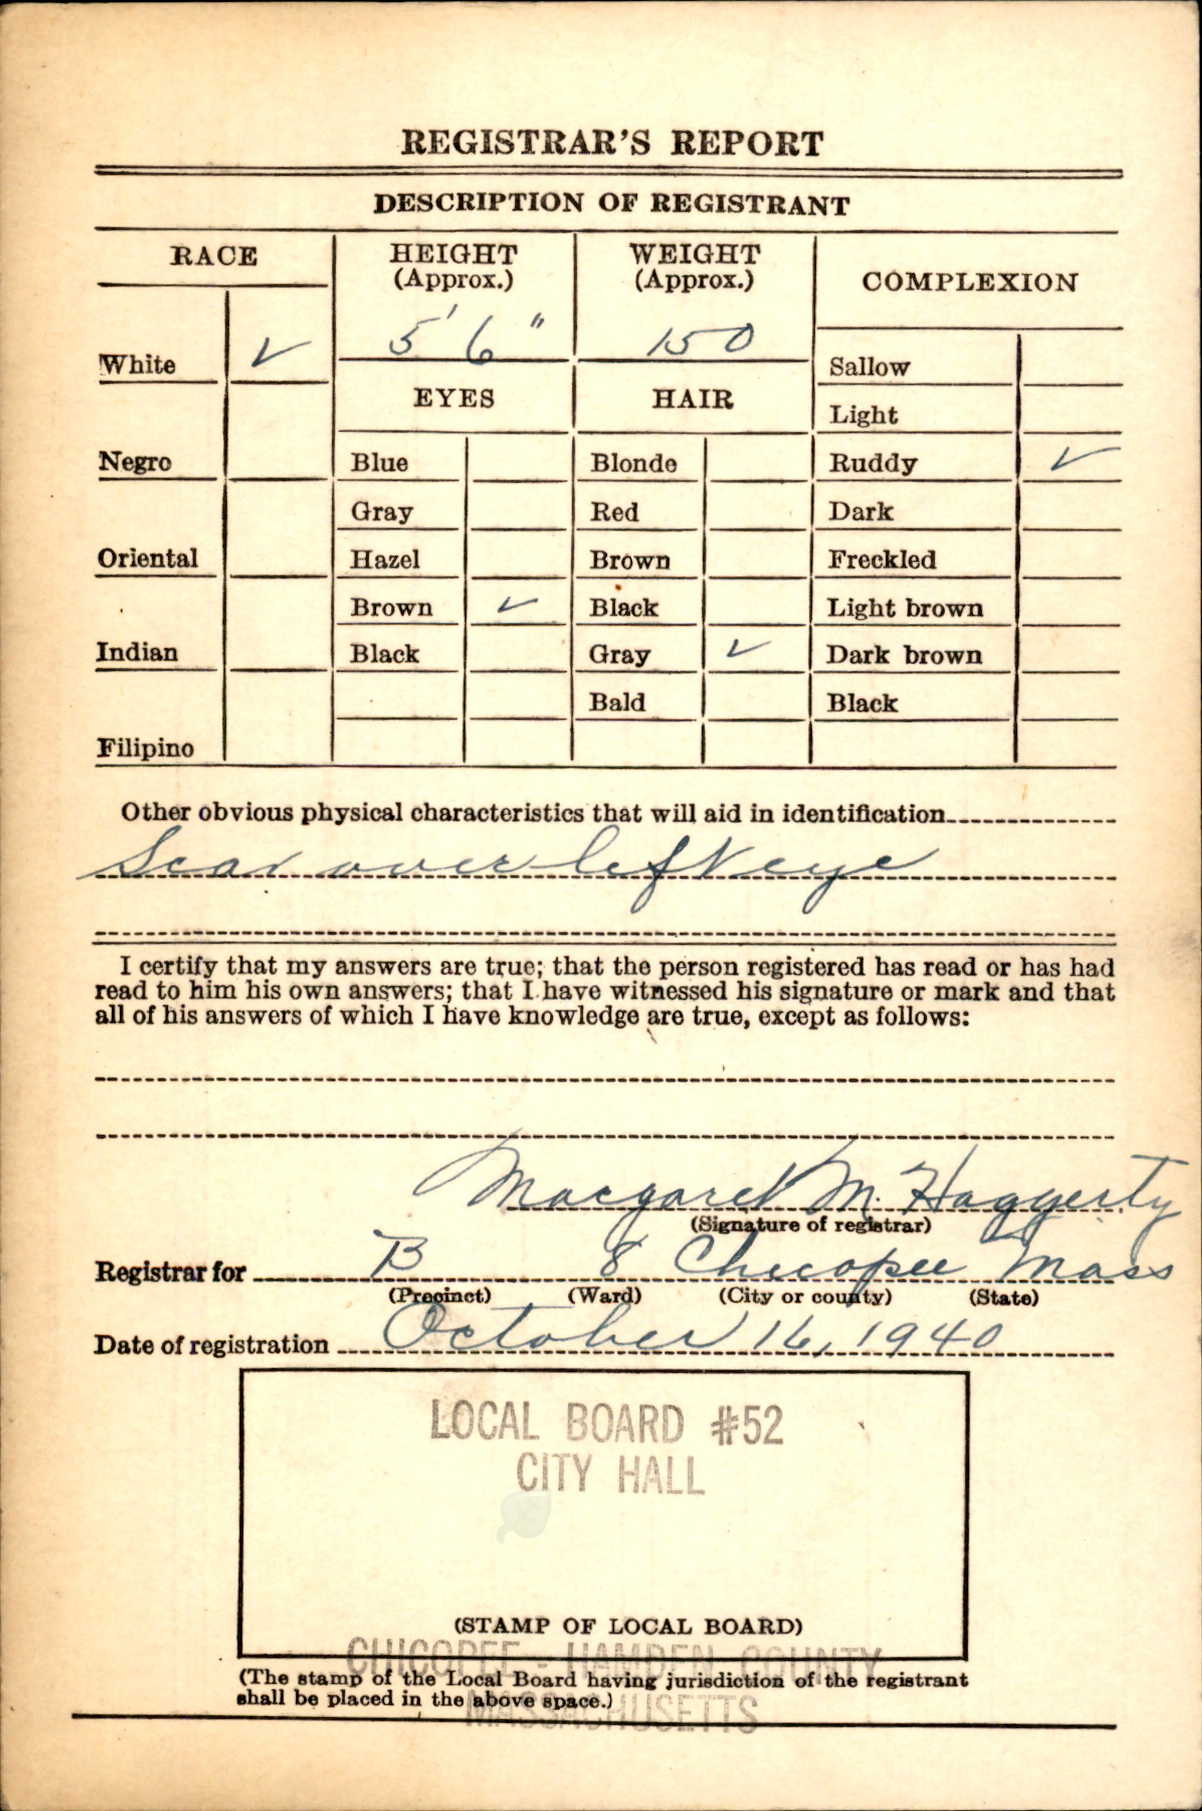 REGISTRAR'S REPORT
DESCRIPTION OF REGISTRANT
RACE HEIGHT (Approx.) WEIGHT (Approx.) COMPLEXION
5' 6" 150
White ✓ Sallow
EYES HAIR
Light
Negro Blue Blonde Ruddy ✓
Gray Red Dark
Oriental Hazel Brown Freckled
Brown ✓ Black Light brown
Indian Black Gray ✓ Dark brown
Bald Black
Filipino
Other obvious physical characteristics that will aid in identification
Scar over left eye
I certify that my answers are true; that the person registered has read or has had
read to him his own answers; that I have witnessed his signature or mark and that
all of his answers of which I have knowledge are true, except as follows:
Margaret M. Haggerty
(Signature of registrar)
Registrar for B 8 Chicopee Mass
(Precinct) (Ward) (City or county) (State)
Date of registration October 16, 1940
LOCAL BOARD #52
CITY HALL
(STAMP OF LOCAL BOARD)
CHICOPEE - HAMDEN COUNTY
(The stamp of the Local Board having jurisdiction of the registrant
shall be placed in the above space.)
MASSACHUSETTS